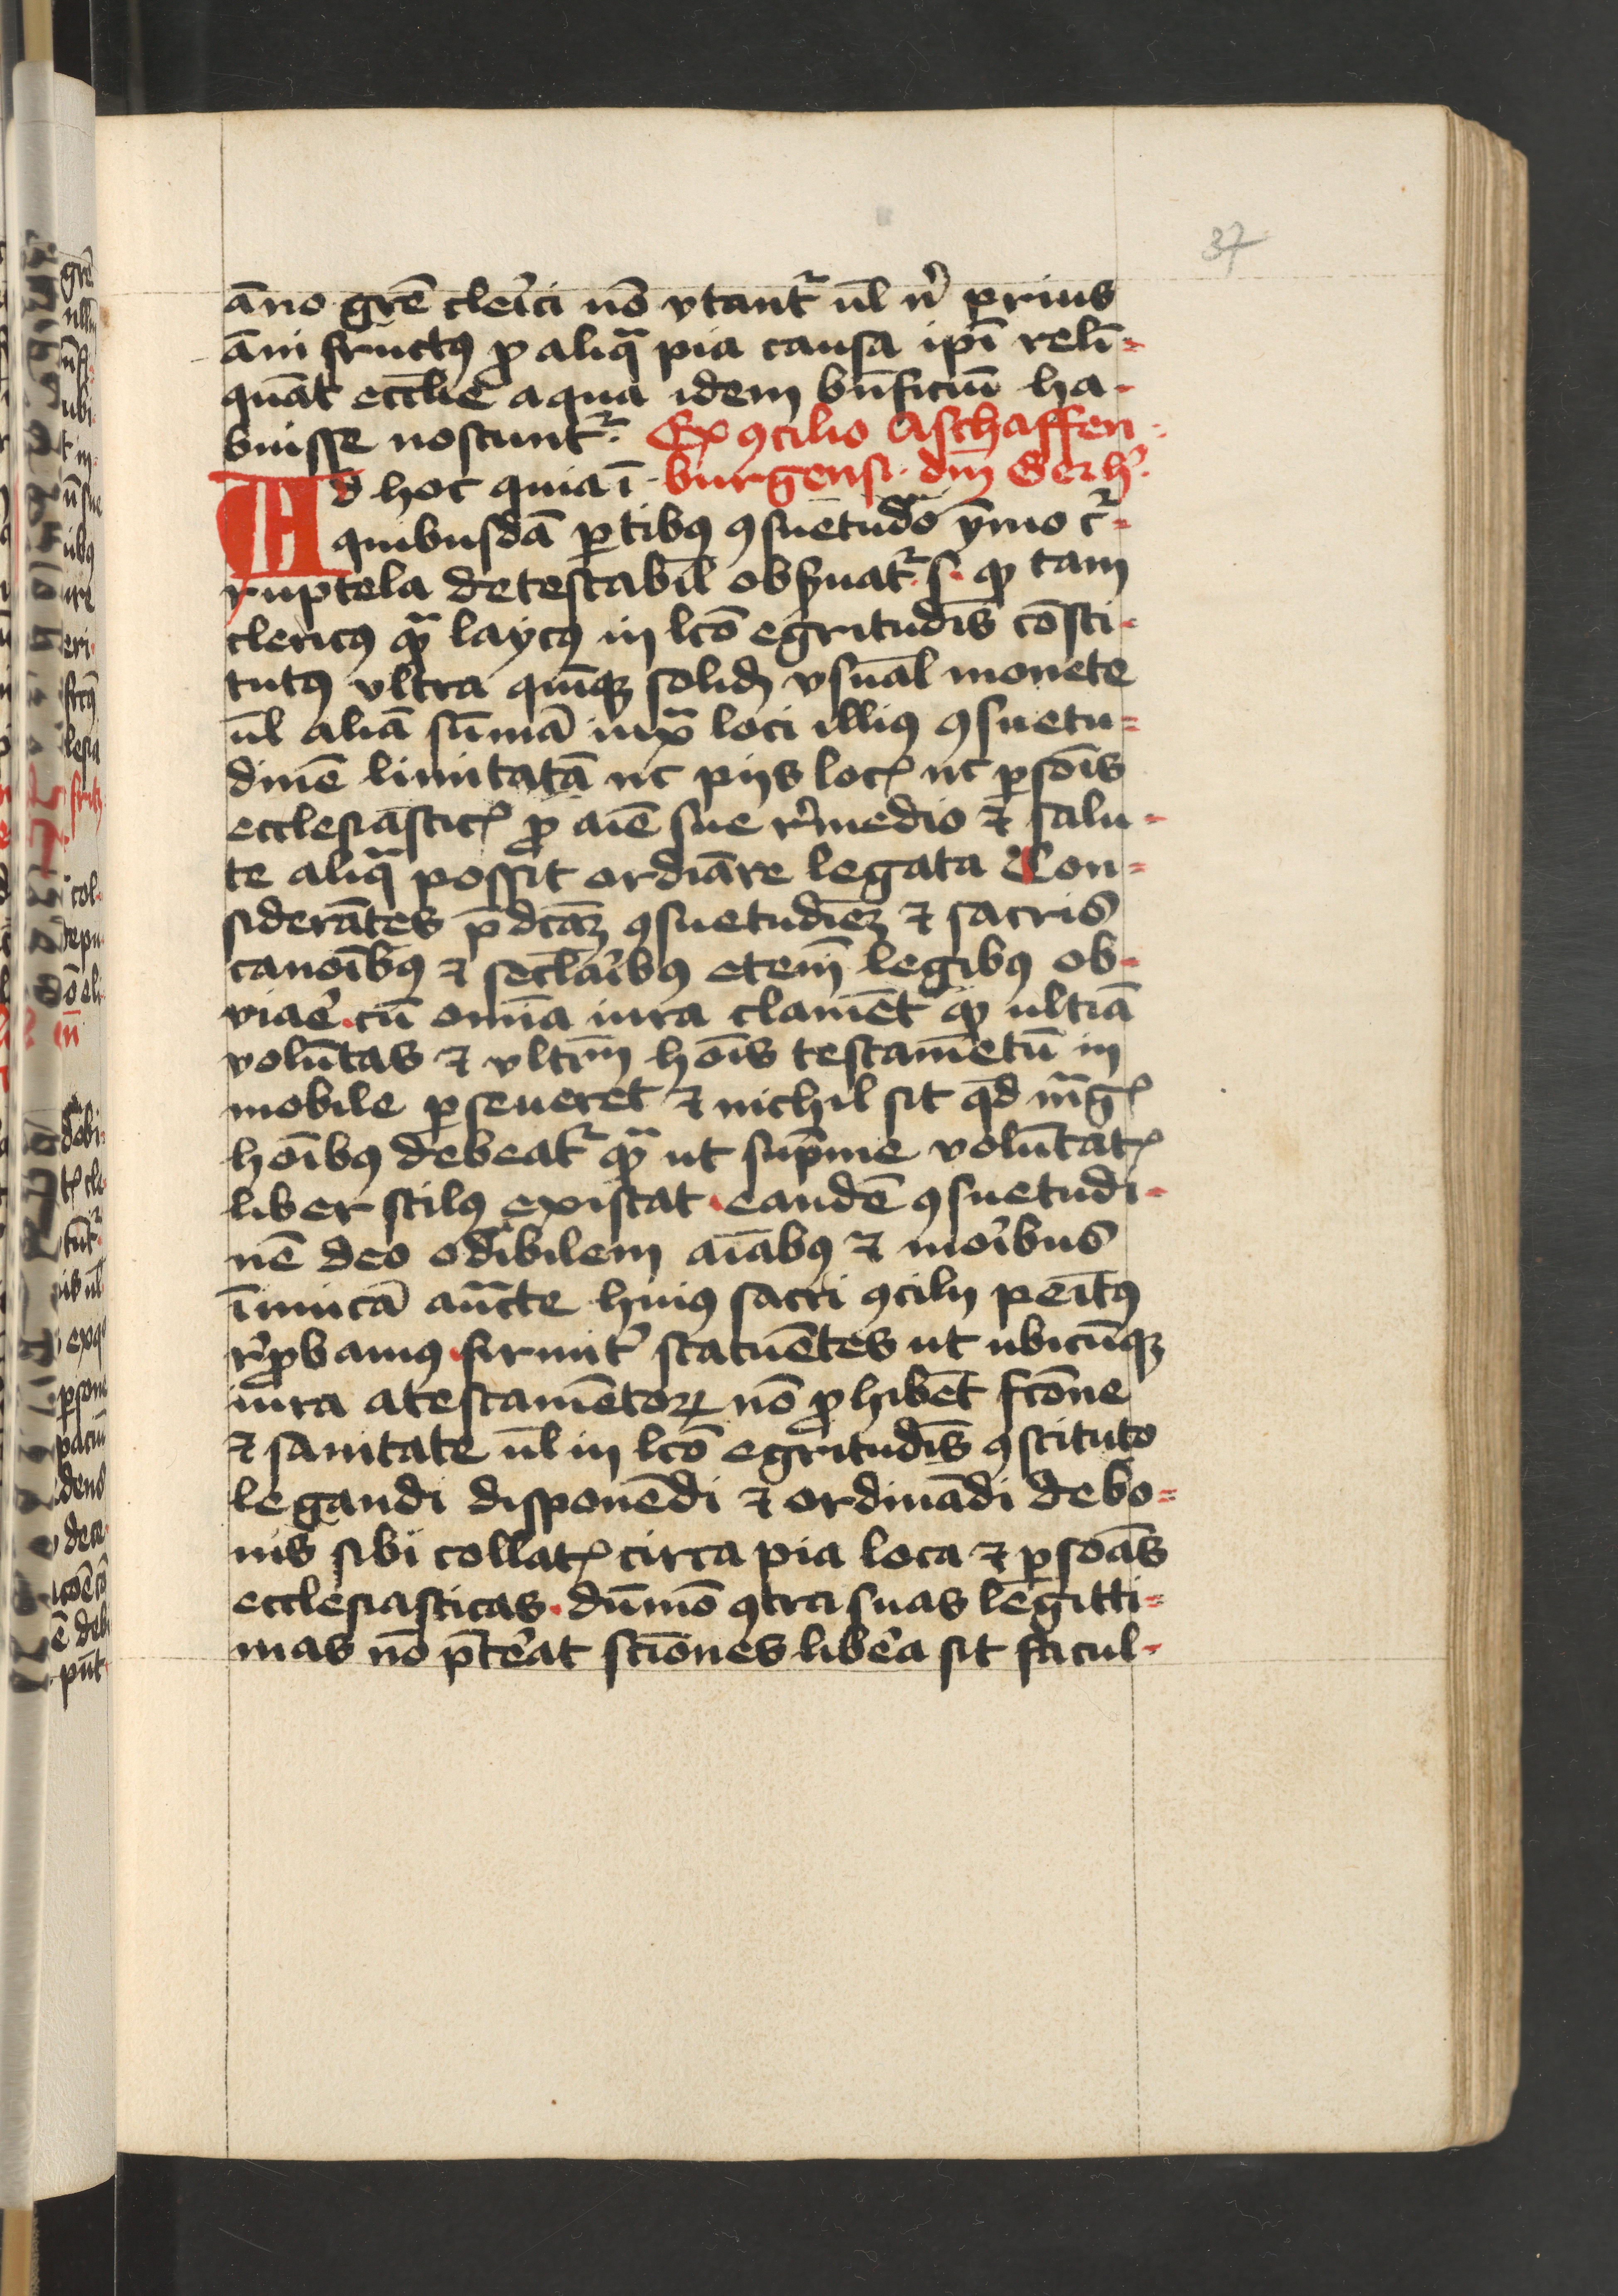 37
āno grē clei̾ci nō vtant᷑ ul̄ n̾ prius
āni fructꝰ ꝓ aliqͣ pia causa ip̄i reli-
quāt eccl̄ie a qua idem bn̄ficiū ha-
buisse noscunt᷑. Ex ꝯcilio Aschaffen-
Ad hoc quia ī burgensi. dn̄i Gerh̾.
quibusdā ꝑtibꝰ ꝯsuetudo ymo cͬ-
ruptela detestabil̄ obs̄uat᷑. s. ꝙ tam
clericꝰ qͣ laycꝰ in lc̄o egritudīs cōsti-
tutꝰ vltra quīqꝫ solid̄ vsual̄ monete
ul̄ aliā sūmā iuxͣ loci illiꝰ ꝯsuetu-
dinē limitatā nc piis locꝭ nc ꝑsoīs
ecclesiasticꝭ ꝓ aīe sue r̾medio ⁊ salu-
te aliqͣ possit ordīare legata Con-
siderātes p̄dcāꝫ ꝯsuetudīeꝫ ⁊ sacris
canoībꝰ ⁊ secl̄aribꝰ etem̄ legibꝰ ob-
viae̾. cū omīa iura clamēt ꝙ ultīa
volūtas ⁊ vltīm hoīs testamētū in
mobile ꝑseueret ⁊ nichil sit qd̄ mͣgꝭ
hoībꝰ debeat᷑ qͣ ut sup̄me volūtatꝭ
liber stilꝰ existat. eandē ꝯsuetudi-
nē deo odibilem aīabꝰ ⁊ moi̾bus
īimicā auc̄te huiꝰ sacri ꝯcilij peītꝰ
r̾ꝓbamꝰ. firmit̾ statuētes ut ubicūqꝫ
iura a testamētoꝝ nō ꝓhibēt fc̄one
⁊ sanitate ul̄ in lc̄o egritudīs ꝯstituto
legandi disponēdi ⁊ ordinādi de bo-
nis sibi collatꝭ circa pia loca ⁊ ꝑsoās
ecclesiasticas. dūmō ꝯtra suas legitti-
mas nō p̄te̾at sc̄iones libe̾a sit facul-